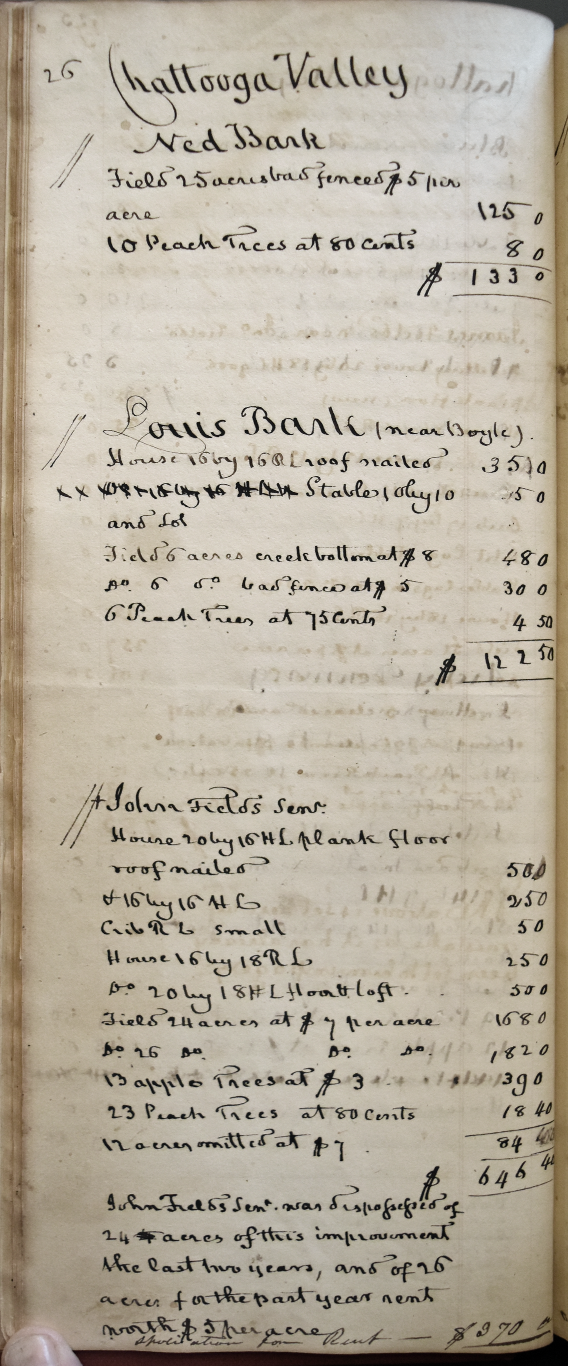 26 Chattooga Valley
Ned Bark
Field 25 acres bad fenced $5 per
acre 125 0
10 Peach Trees at 80 cents 8 0
$ 133 0
Louis Bark (near Boyle).
House 16 by 16 R L roof nailed 35 0
x x Stables 10 by 10 5 0
and Lot
Field 6 acres creek bottom at $8 48 0
Do. 6 do. bad fence at $ 5 30 0
6 Peach Trees at 75 Cents 4 50
$ 122 50
John Fields Senr.
House 20 by 16 H L plank floor
roof nailed 50 0
& 16 by 16 H L 25 0
Crib R L small 5 0
House 16 by 18 R L 25 0
Do. 20 by 18 H L floor & loft 50 0
Field 24 acres at $ 7 per acre 168 0
Do. 26 Do. Do. Do. 182 0
13 apple Trees at $ 3 39 0
23 Peach Trees at 80 Cents 18 40
12 acres omitted at $7 84
$ 646 40
John Fields Senr. was dispossessed of
24 acres of this improvement
the last two years, and of 26
acres for the past year rent
worth $ 5 per acre
Spoliation for Rent — $ 370 0